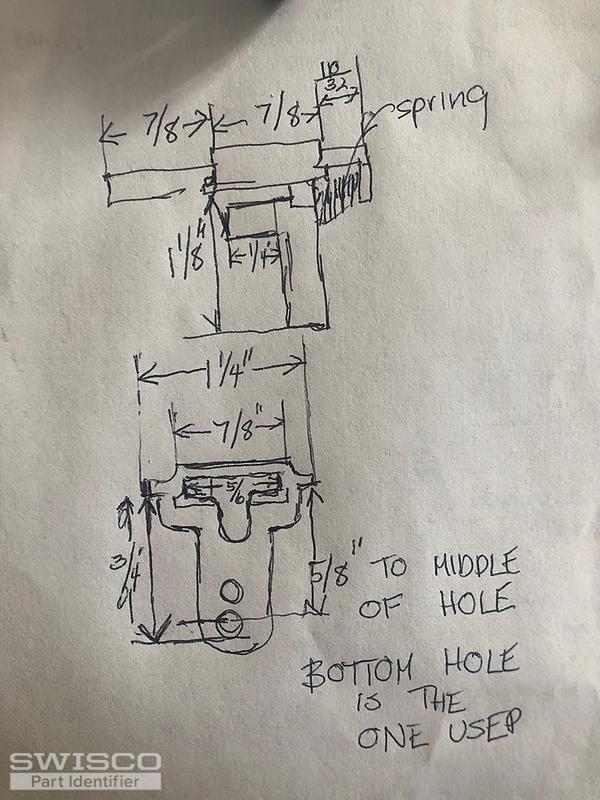 10
32
7/8 7/8 spring
1 1/8"
1/4"
1 1/4"
7/8"
5/6
3/4"
5/8" TO MIDDLE
OF HOLE
BOTTOM HOLE
IS THE
ONE USED
SWISCO
Part Identifier